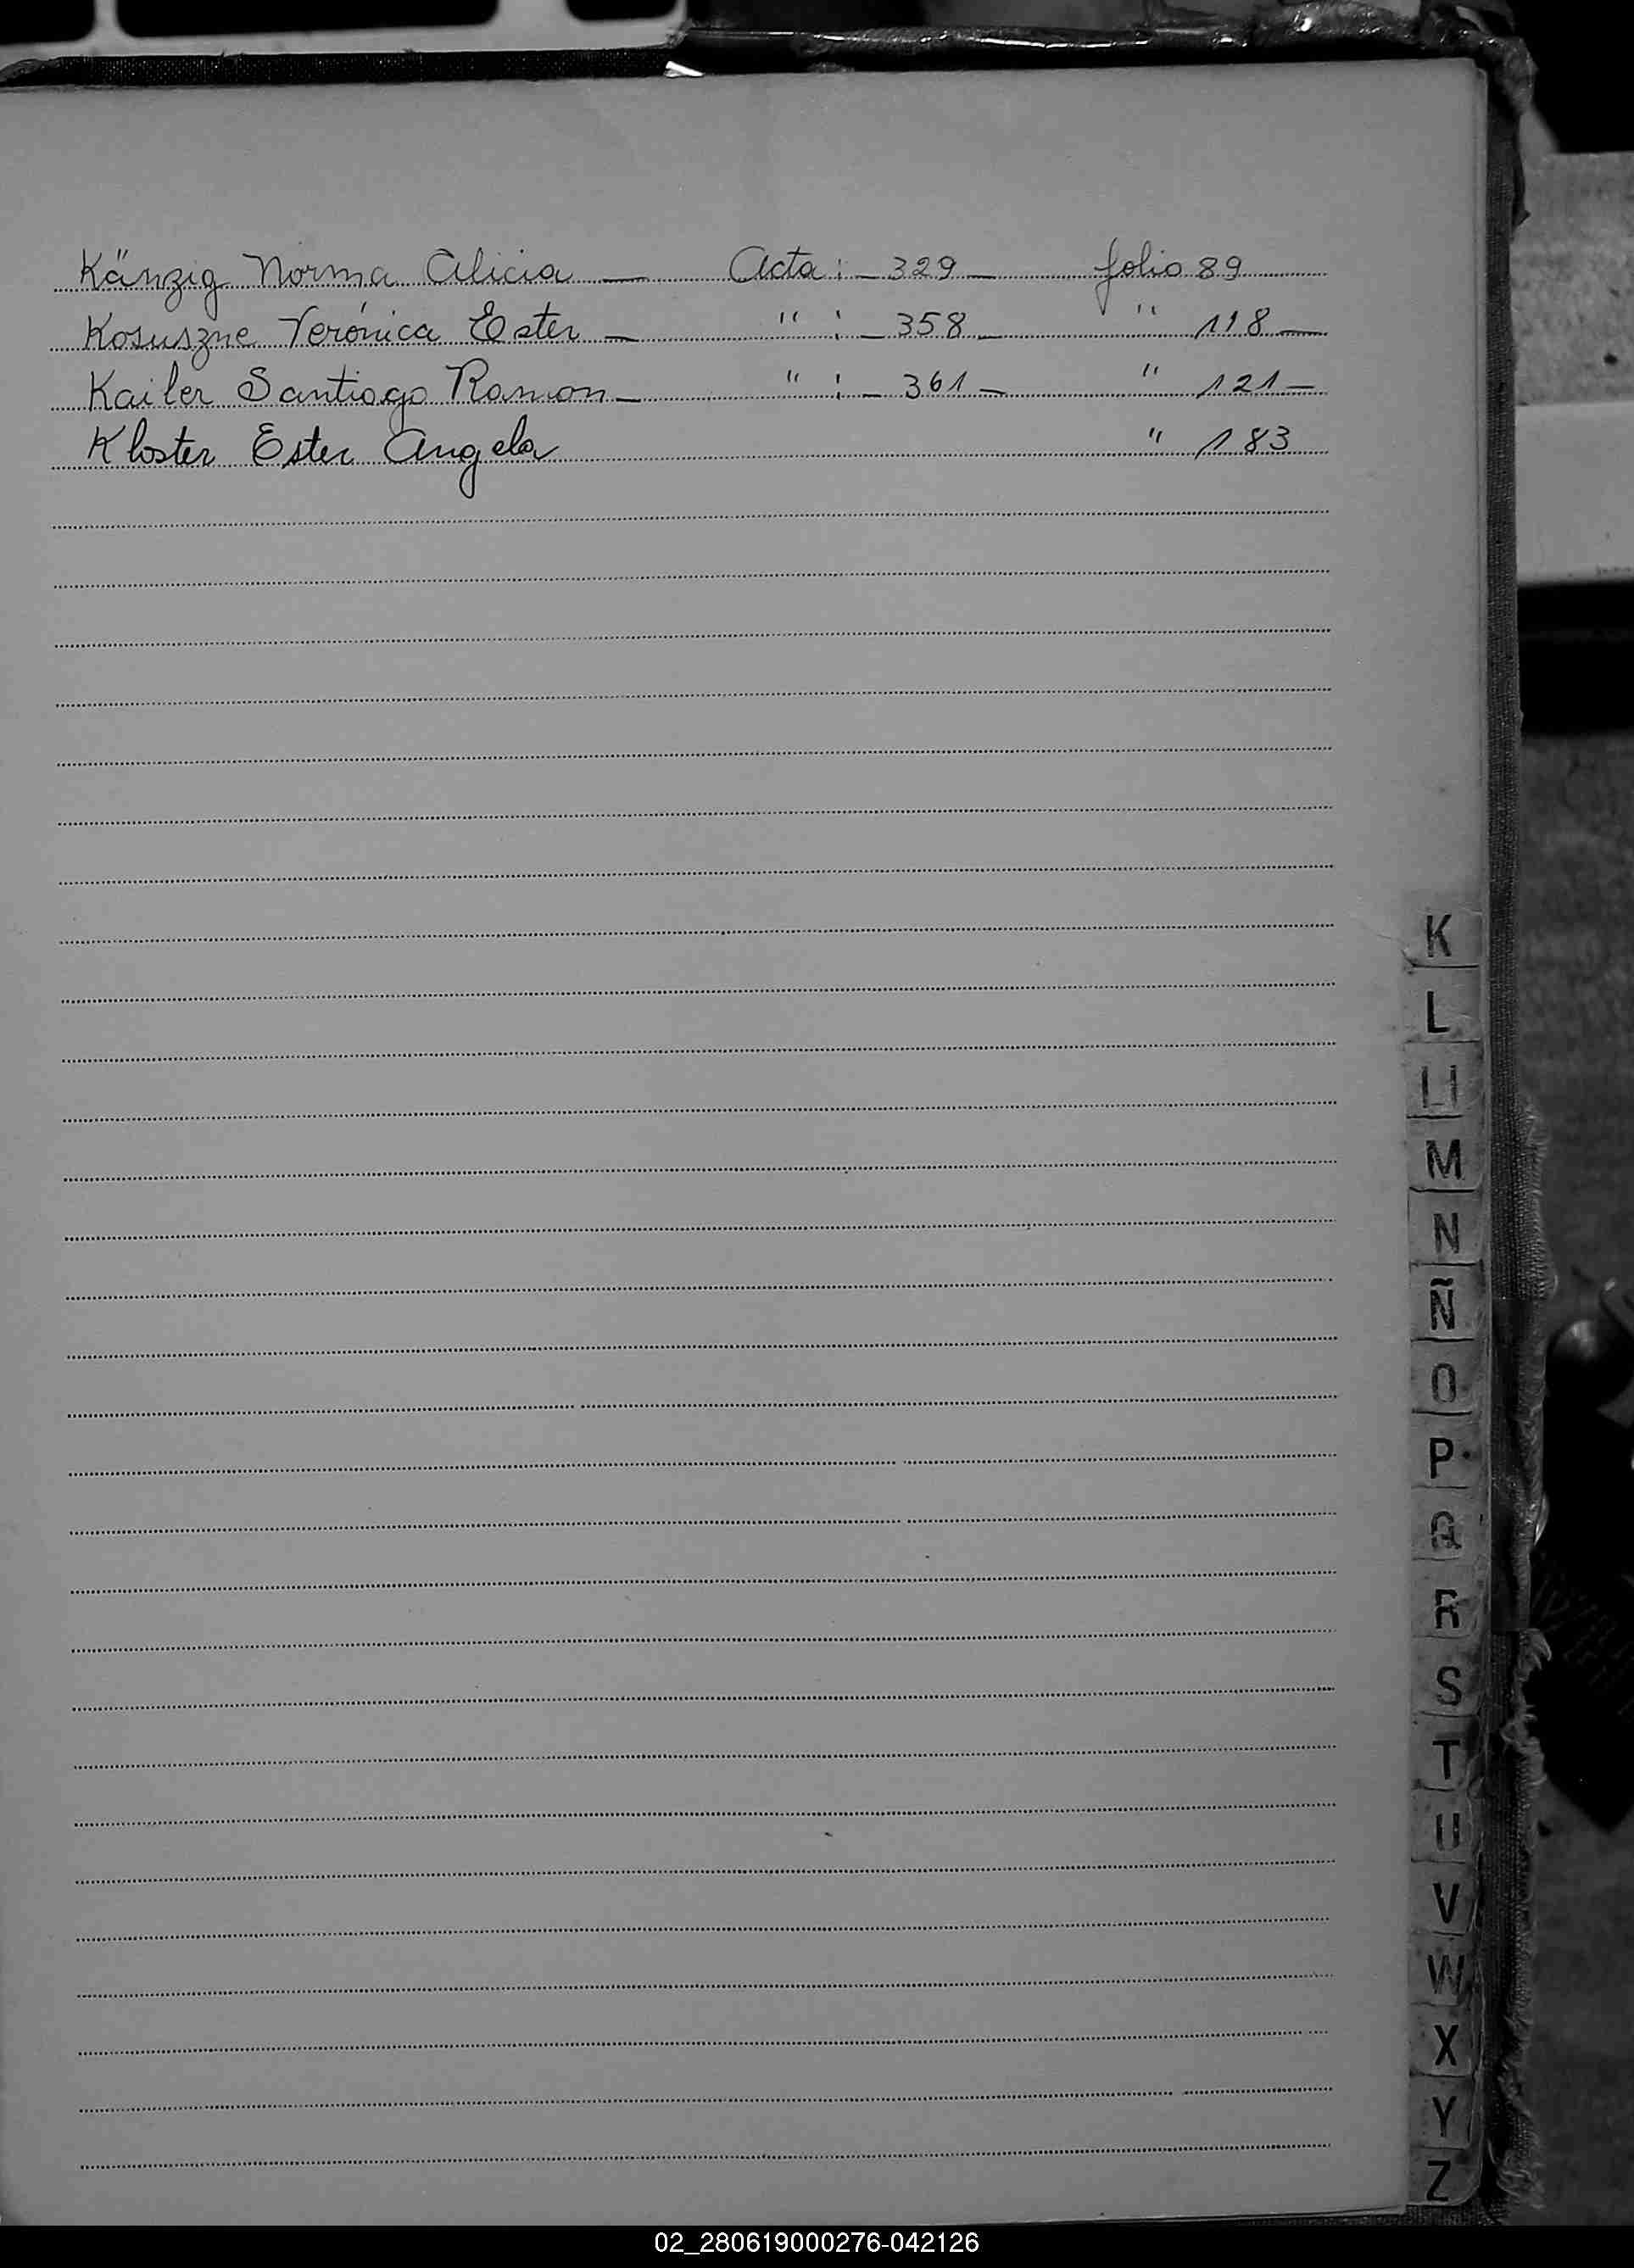 Känzig Norma Alicia — Acta: – 329 – folio 89
Kosuszne Verónica Ester – " : – 358 – " 118 —
Kailer Santiago Ramon – " : – 361 – " 121 –
Kloster Ester Angela " 183
K
L
Ll
M
N
Ñ
O
P
Q
R
S
T
U
V
W
X
Y
Z
02_280619000276-042126